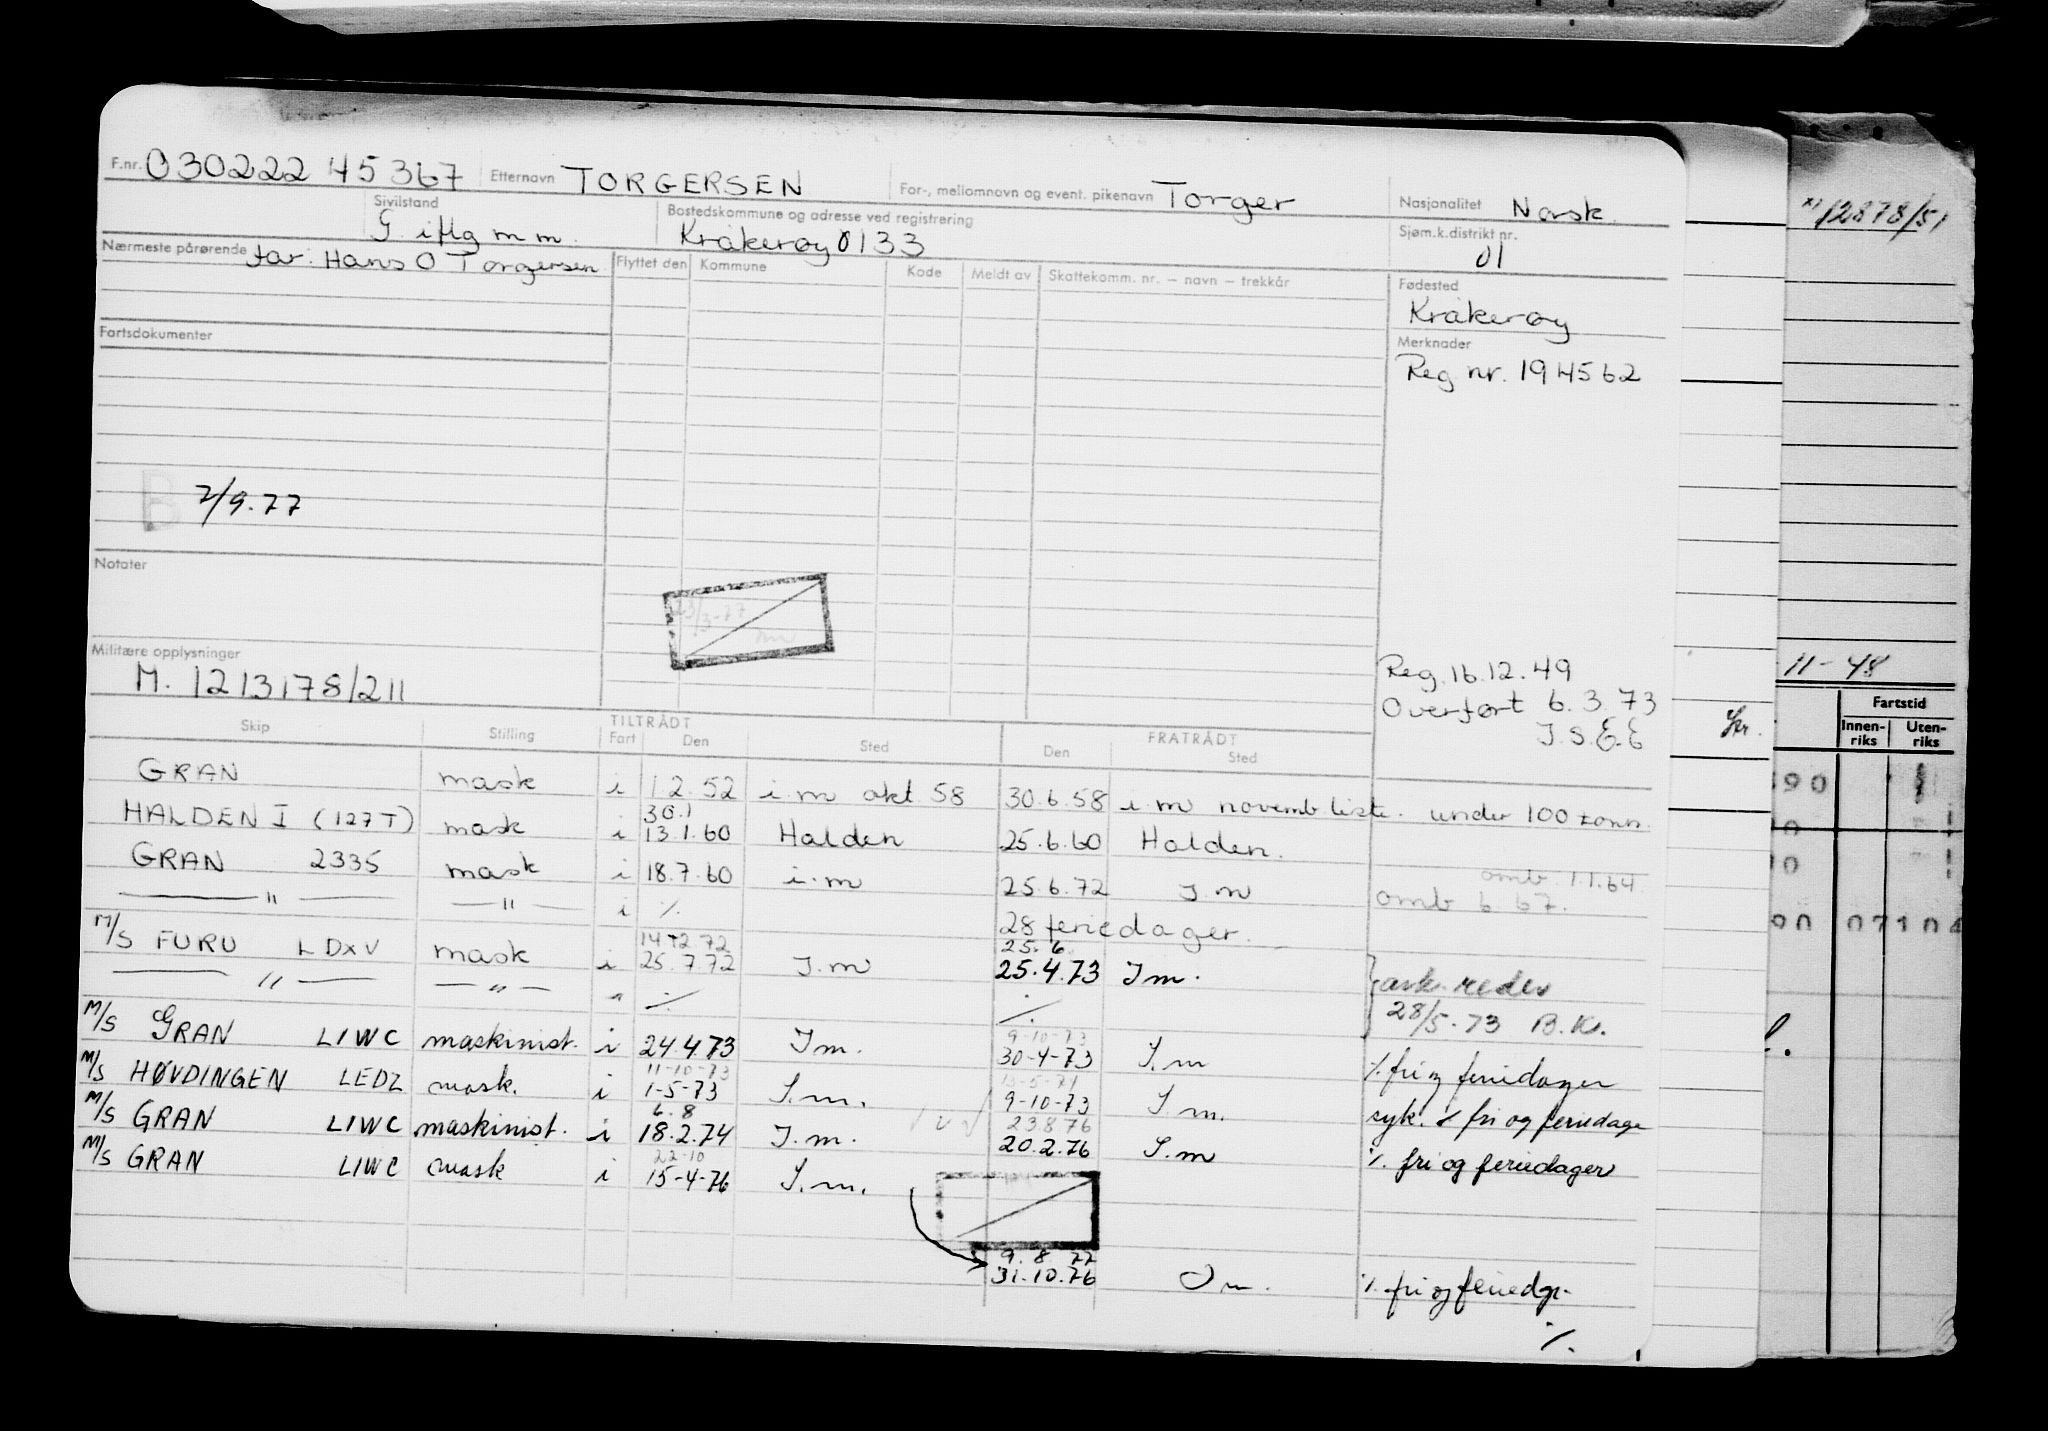 F.nr. 030222 45367 Etternavn TORGERSEN For-, mellomnavn og event. pikenavn Torger Nasjonalitet Norsk.
Sivilstand G. iflg m m. Bostedskommune og adresse ved registrering Kråkerøy 0133 Sjøm.k.distrikt nr. 01
Nærmeste pårørende far: Hans O Torgersen Flyttet den Kommune Kode Meldt av Skattekomm. nr. – navn – trekkår Fødested
Kråkerøy
Fartsdokumenter Merknader
Reg nr. 194562
B 2/9.77
Notater
23/3-77
Militære opplysninger
M. 1213178/211
Reg. 16.12.49
Overført 6.3.73
J.S.E.E
Skip Stilling TILTRÅDT FRATRÅDT
Fart Den Sted Den Sted
GRAN mask i 1.2.52 i.m okt 58 30.6.58 i.m novemb liste. under 100 tonn.
30.1
HALDEN I (127T) mask i 13.1.60 Halden 25.6.60 Halden.
GRAN 2335 mask i 18.7.60 i.m 25.6.72 I.m omb. 1.1.64.
— " — — " — i ./. 28 feriedager. omb 6 67.
14 12 72 25.6.
M/S FURU LDXV mask i 25.7.72 I.m 25.4.73 Im. } avk. reder
— " — — " — " ./. ./. 28/5-73 B.K.
9-10-73
M/S GRAN LIWC maskinist. i 24.4.73 Im. 30-4-73 I.m ./. fri og feriedager
11-10-73
M/S HØVDINGEN LEDZ mask. i 1-5-73 I.m. 9-10-73 I.m. syk. ./. fri og feriedage
6.8 23 8 76
M/S GRAN LIWC maskinist. i 18.2.74 I.m. 20.2.76 I.m ./. fri og feriedager
22-10
M/S GRAN LIWC mask i 15-4-76 I.m.
9. 8 77
31.10.76 Om. ./. fri og feriedgr.
./.
12878/51
11-48
Fartstid
Innen-riks Uten-riks
90 07104